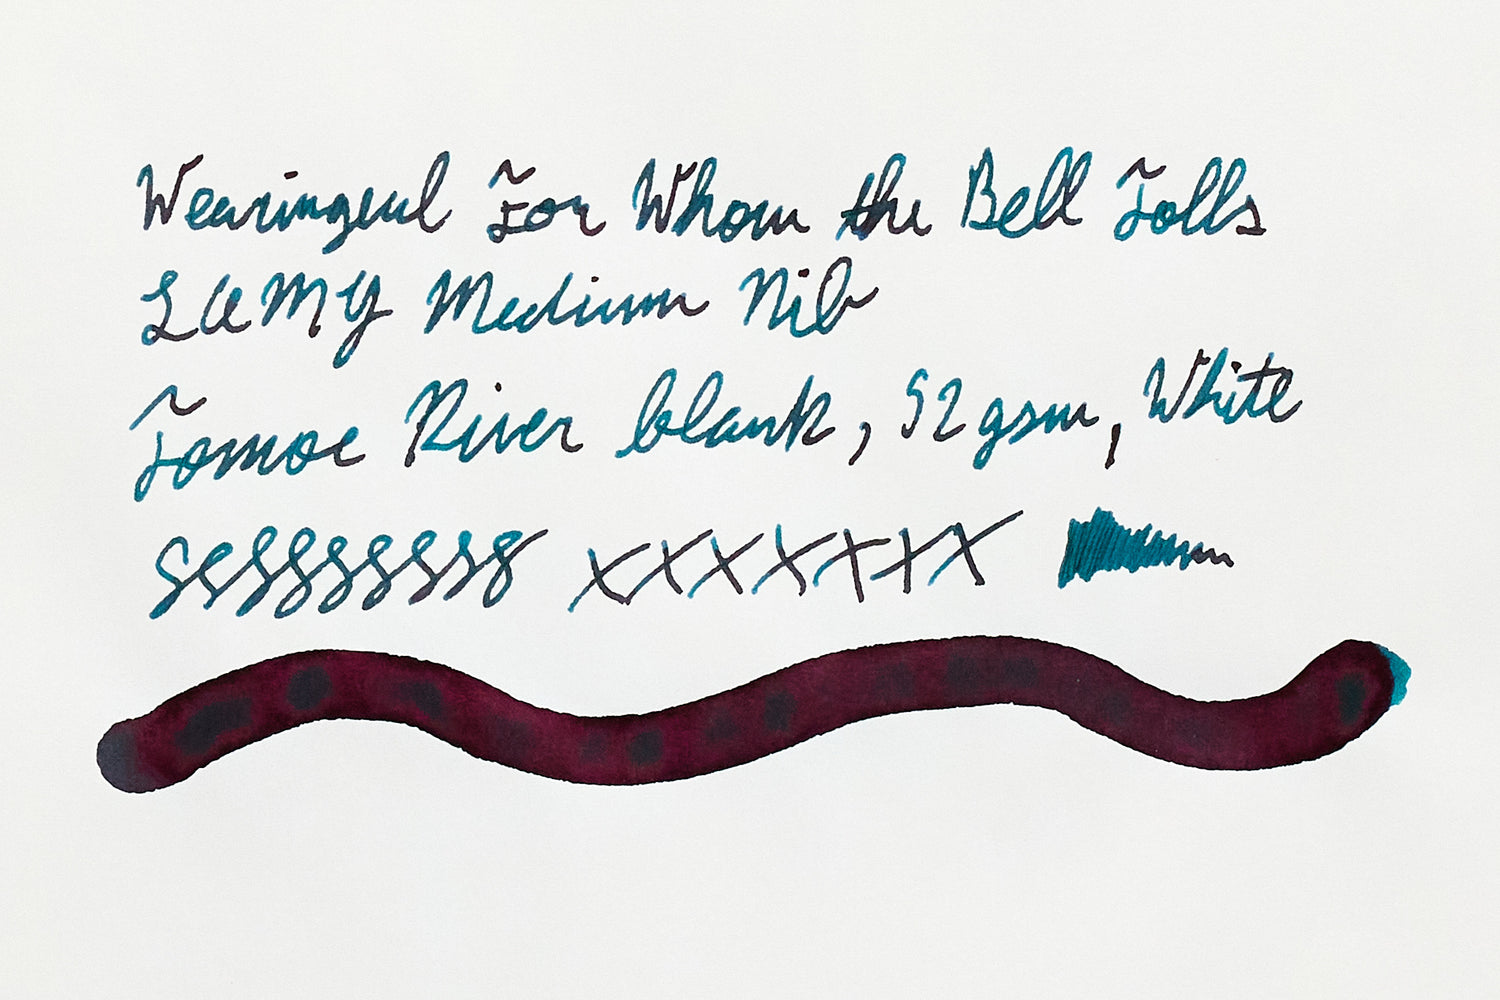 Wearingeul For Whom the Bell Tolls
LAMY Medium Nib
Tomoe River blank, 52gsm, White